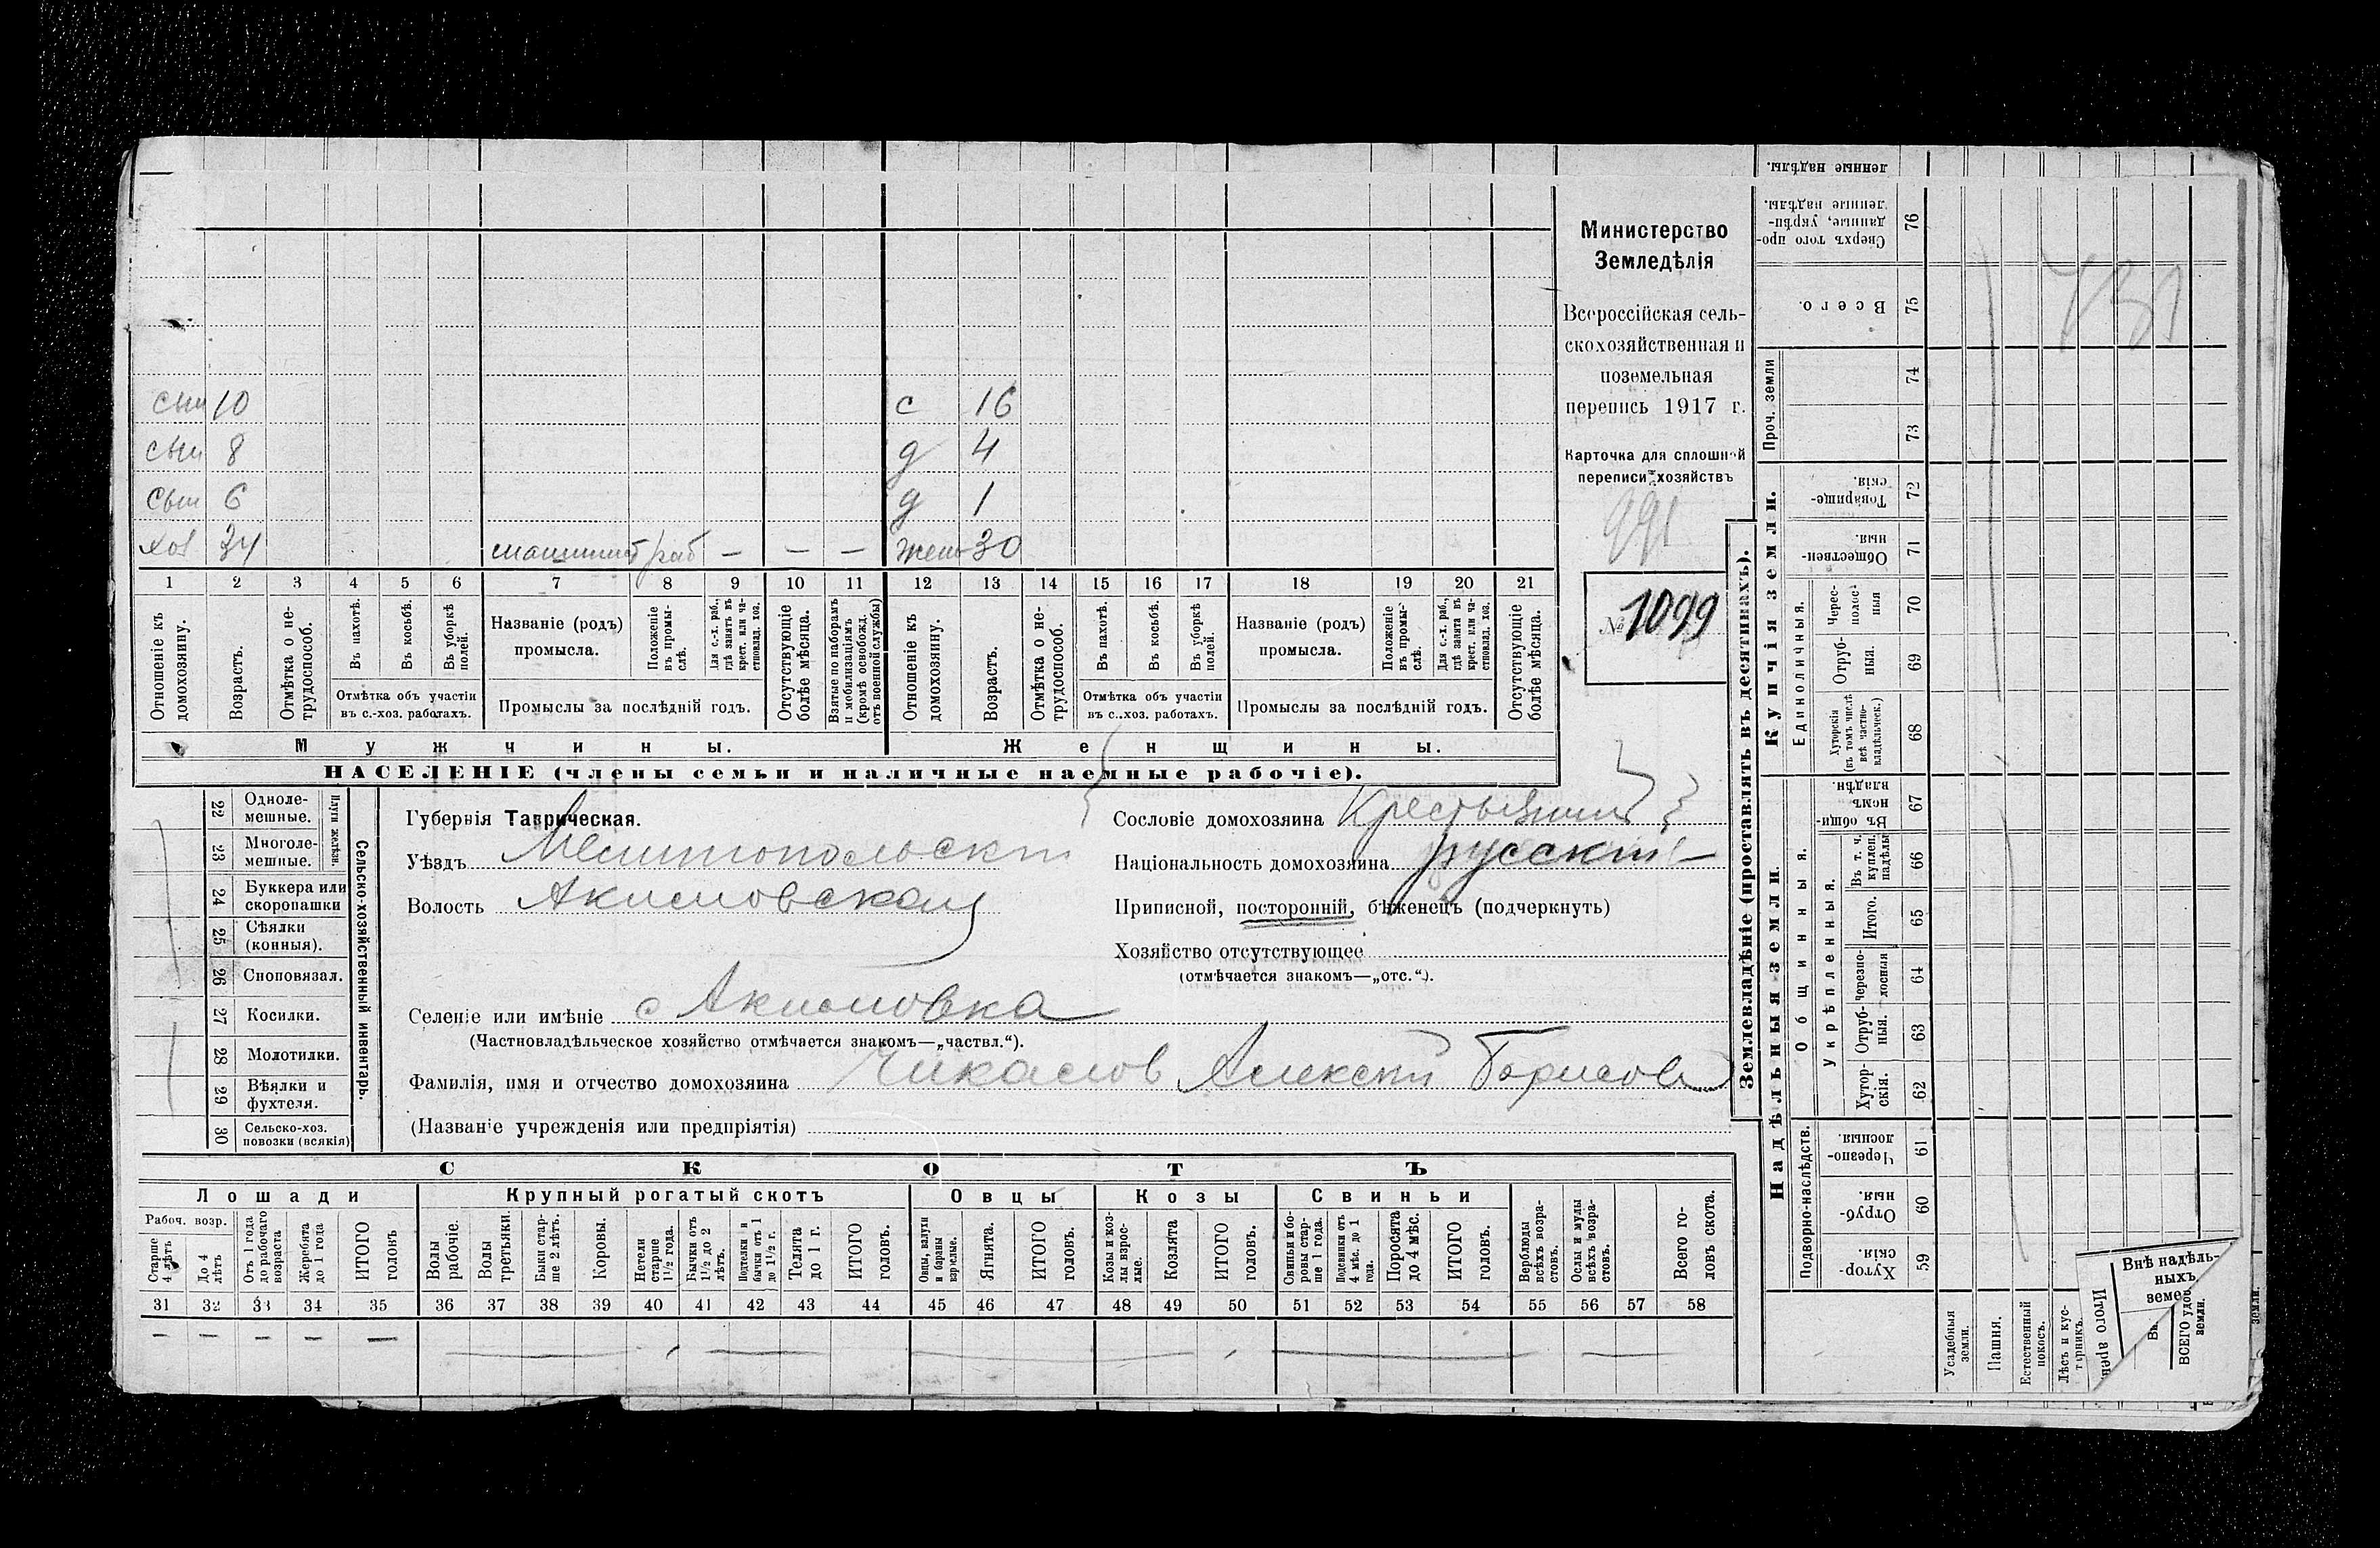 сын 10 с 16
сын 8 д 4
сын 6 д 1
хоз 34 машинист раб — — — жена 30
1 2 3 4 5 6 7 8 9 10 11 12 13 14 15 16 17 18 19 20 21
Отношеніе къ домохозяину.
Возрастъ.
Отмѣтка о нетрудоспособ.
Въ пахотѣ.
Въ косьбѣ.
Въ уборкѣ полей.
Отмѣтка объ участіи
въ с.-хоз. работахъ.
Названіе (родъ)
промысла.
Положеніе въ промыслѣ.
Для с.-х. раб., гдѣ занятъ въ крест. или частновлад. хоз.
Промыслы за послѣдній годъ.
Отсутствующіе болѣе мѣсяца.
Взятые по наборамъ и мобилизаціямъ (кромѣ освобожд. отъ военной службы)
Отношеніе къ домохозяину.
Возрастъ.
Отмѣтка о нетрудоспособ.
Въ пахотѣ.
Въ косьбѣ.
Въ уборкѣ полей.
Отмѣтка объ участіи
въ с.-хоз. работахъ.
Названіе (родъ)
промысла.
Положеніе въ промыслѣ.
Для с.-х. раб., гдѣ занята въ крест. или частновлад. хоз.
Промыслы за послѣдній годъ.
Отсутствующіе болѣе мѣсяца.
Мужчины. Женщины.
НАСЕЛЕНІЕ (члены семьи и наличные наемные рабочіе).
Министерство
Земледѣлія
Всероссійская сель-
скохозяйственная и
поземельная
перепись 1917 г.
Карточка для сплошной
переписи хозяйствъ
991
№ 1099
Сельско-хозяйственный инвентарь.
Плуги желѣзн.
22 Одноле-
мешные.
23 Многоле-
мешные.
24 Буккера или
скоропашки
25 Сѣялки
(конныя).
26 Сноповязал.
27 Косилки.
28 Молотилки.
29 Вѣялки и
фухтеля.
30 Сельско-хоз.
повозки (всякія)
Губернія Таврическая.
Уѣздъ Мелитопольскій
Волость Акимовская
Селеніе или имѣніе с Акимовка
(Частновладѣльческое хозяйство отмѣчается знакомъ—„частвл.“).
Фамилія, имя и отчество домохозяина Чикасов Алексей Борисов
(Названіе учрежденія или предпріятія)
Сословіе домохозяина Крестьянин
Національность домохозяина русскій
Приписной, посторонній, бѣженецъ (подчеркнуть)
Хозяйство отсутствующее
(отмѣчается знакомъ—„отс.“).
СКОТЪ
Лошади Крупный рогатый скотъ Овцы Козы Свиньи
Рабоч. возр.
Старше 4 лѣтъ
До 4 лѣтъ
Отъ 1 года до рабочаго возраста
Жеребята до 1 года
ИТОГО головъ
Волы рабочіе.
Волы третьяки.
Быки старше 2 лѣтъ.
Коровы.
Нетели старше 1½ года.
Бычки отъ 1½ до 2 лѣтъ.
Подтелки и бычки отъ 1 до 1½ г.
Телята до 1 г.
ИТОГО головъ.
Овцы, валухи и бараны взрослые.
Ягнята.
ИТОГО головъ.
Козы и козлы взрослые.
Козлята
ИТОГО головъ.
Свиньи и боровы старше 1 года.
Подсвинки отъ 4 мѣс. до 1 года.
Поросята до 4 мѣс.
ИТОГО головъ.
Верблюды всѣхъ возрастовъ.
Ослы и мулы всѣхъ возрастовъ.
Всего головъ скота.
31 32 33 34 35 36 37 38 39 40 41 42 43 44 45 46 47 48 49 50 51 52 53 54 55 56 57 58
— — — — —
Землевладѣніе (проставлять въ десятинахъ).
Надѣльныя земли. Купчія земли.
Проч. земли
Подворно-наслѣдств.
Общинныя.
Укрѣпленныя.
Единоличныя.
ленные надѣлы.
Сверхъ того проданные, укрѣпленные надѣлы. 76
Всего. 75
74
73
Товарищескія. 72
Общественныя. 71
Чересполосныя 70
Отрубныя. 69
Хуторскія (въ томъ числѣ всѣ частновладѣльческ.) 68
Въ общинномъ владѣн. 67
Въ т. ч. куплен. надѣлы 66
Итого. 65
Черезполосныя 64
Отрубныя. 63
Хуторскія. 62
Черезполосныя. 61
Отрубныя. 60
Хуторскія. 59
Усадебныя земли.
Пашня.
Естественный покосъ.
Лѣсъ и кустарникъ.
Итого
Внѣ надѣль-
ныхъ
земе
ВСЕГО удоб. земли.
земли.